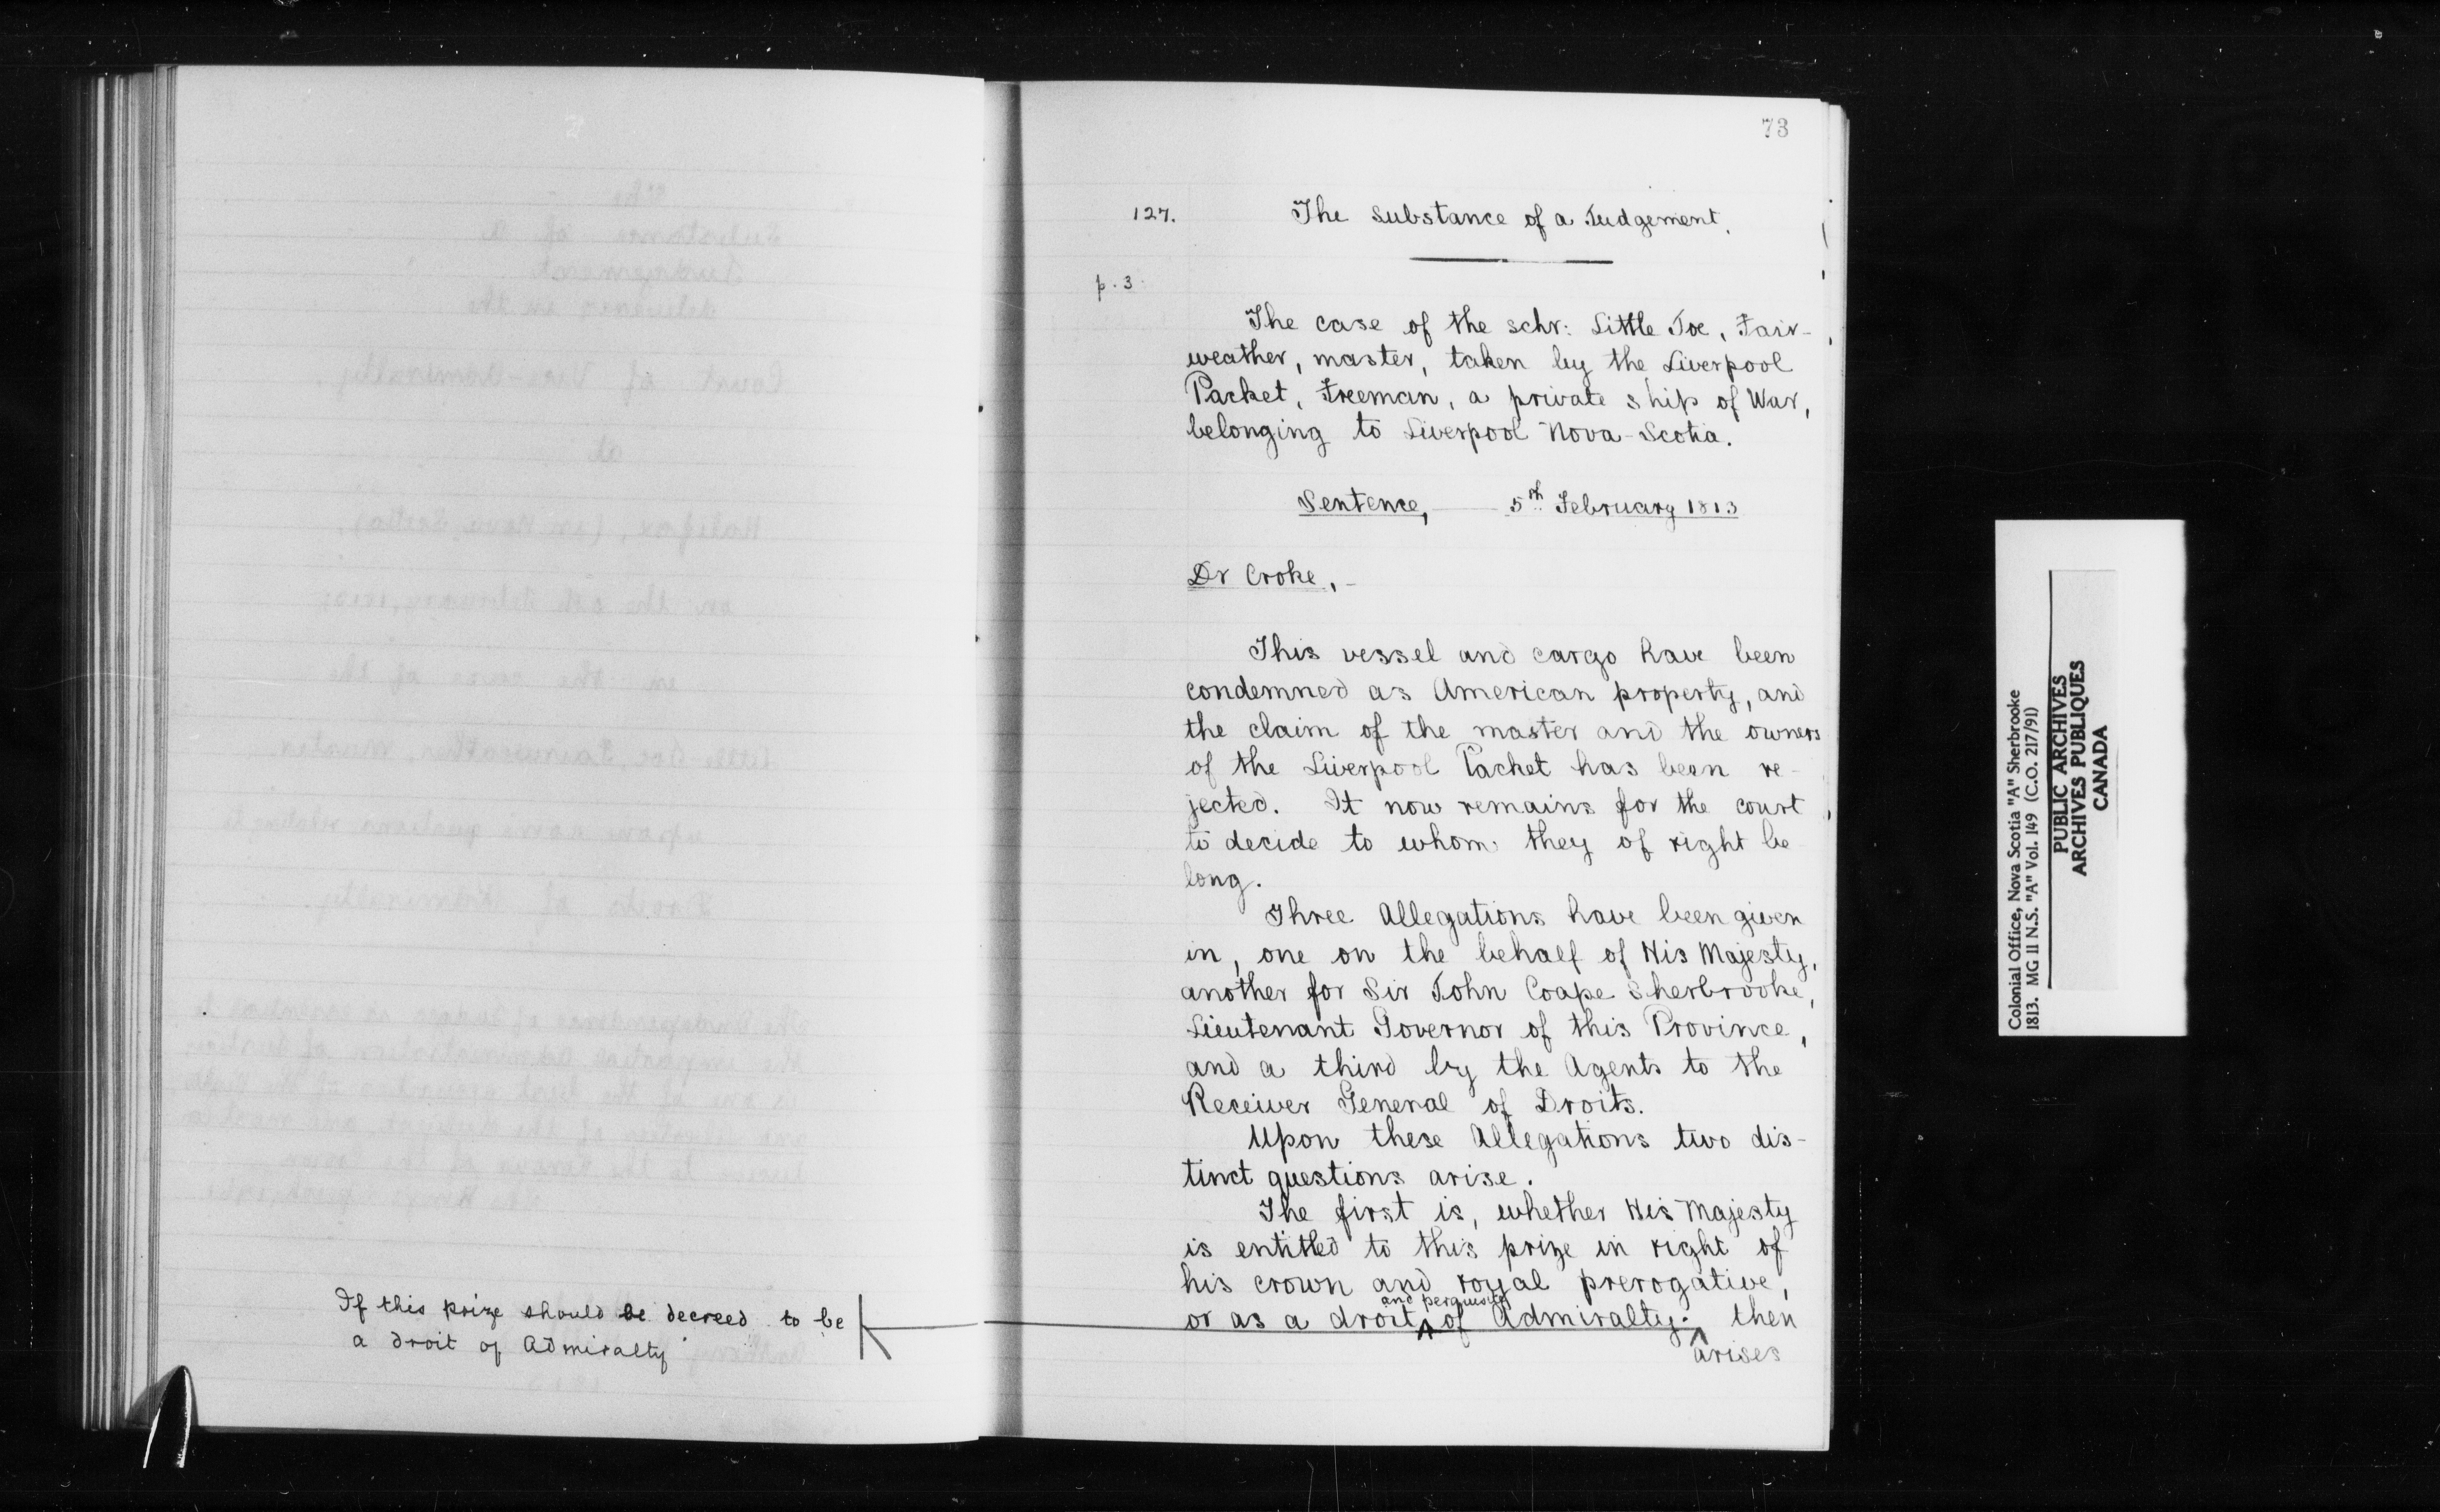 73
127. The Substance of a Judgement.
p. 3
The case of the schr: Little Joe, Fair-
weather, master, taken by the Liverpool
Packet, Freeman, a private ship of War,
belonging to Liverpool Nova-Scotia.
Sentence, 5th February 1813
Dr Croke, -
This vessel and cargo have been
condemned as American property, and
the claim of the master and the owners
of the Liverpool Packet has been re-
jected. It now remains for the court
to decide to whom they of right be
long.
Three Allegations have been given
in, one on the behalf of His Majesty,
another for Sir John Coape Sherbrooke,
Lieutenant Governor of this Province,
and a third by the Agents to the
Receiver General of Droits.
Upon these Allegations two dis-
tinct questions arise.
The first is, whether His Majesty
is entitled to this prize in right of
his crown and royal prerogative,
and perquisite
or as a droit ^ of Admiralty. ^ then
arises
If this prize should be decreed to be
a droit of Admiralty
Colonial Office, Nova Scotia "A" Sherbrooke
1813. MG 11 N.S. "A" Vol. 149 (C.O. 217/91)
PUBLIC ARCHIVES
ARCHIVES PUBLIQUES
CANADA